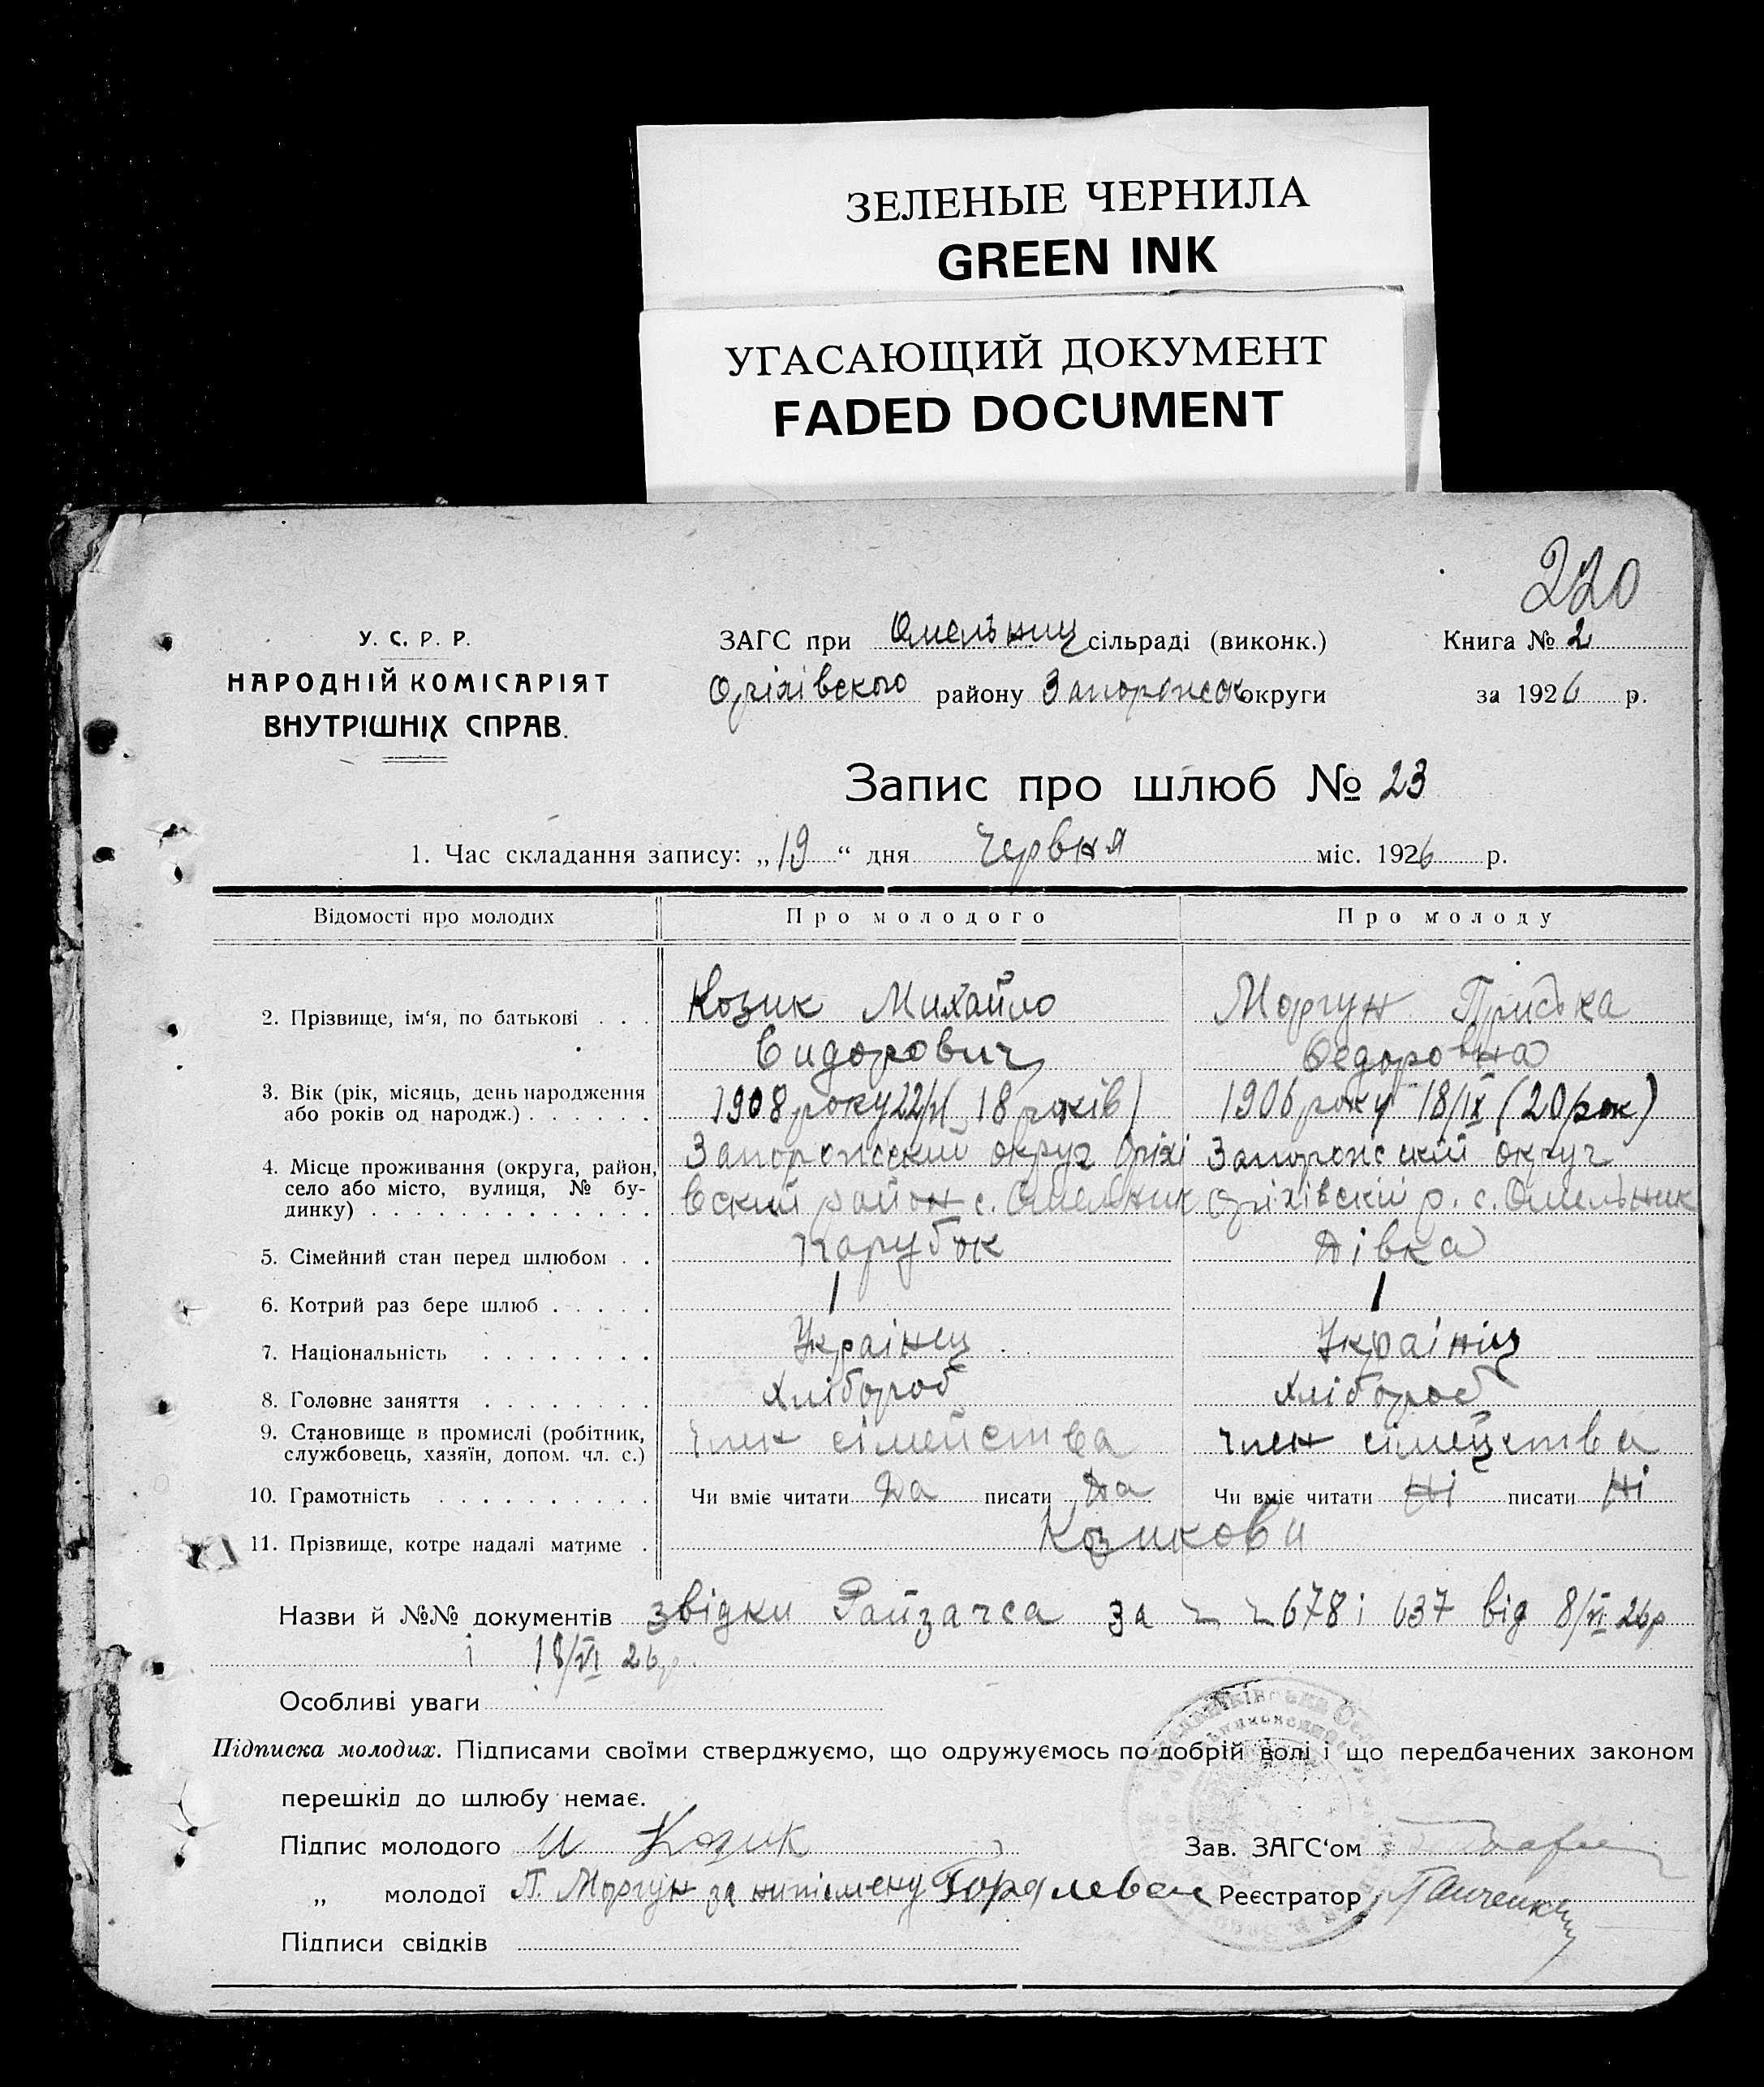 ЗЕЛЕНЫЕ ЧЕРНИЛА
GREEN INK
УГАСАЮЩИЙ ДОКУМЕНТ
FADED DOCUMENT
220
У. С. Р. Р.
НАРОДНІЙ КОМІСАРІЯТ
ВНУТРІШНІХ СПРАВ.
ЗАГС при Омельниц сільраді (виконк.)
Книга № 2
Оріхівского району Запоріжск округи
за 1926 р.
Запис про шлюб № 23
1. Час складання запису: „19“ дня Червня міс. 1926 р.
Відомості про молодих Про молодого Про молоду
2. Прізвище, ім'я, по батькові . . . Козик Михайло Моргун Приська
Сидорович Федоровна
3. Вік (рік, місяць, день народження
або років од народж.) . . . . . . 1908 року 22/VI 18 років) 1906 року 18/IX (20 рок)
4. Місце проживання (округа, район, Запоріжский округ Оріхі Запоріжский округ
село або місто, вулиця, № бу- вский район с. Омельник Оріхівскій р. с. Омельник
динку) . . . . . . . . . . . . .
5. Сімейний стан перед шлюбом . . Парубок Дівка
6. Котрий раз бере шлюб . . . . . 1 1
7. Національність . . . . . . . . Українц Українц
8. Головне заняття . . . . . . . . Хлібороб Хлібороб
9. Становище в промислі (робітник,
службовець, хазяїн, допом. чл. с.) член сімейства член сімейства
10. Грамотність . . . . . . . . . . Чи вміє читати Да писати Да Чи вміє читати Ні писати Ні
11. Прізвище, котре надалі матиме . Козикови
Назви й №№ документів звідки Райзагса за 678 і 637 від 8/VI 26р
і 18/VI 26р.
Особливі уваги
Підписка молодих. Підписами своїми стверджуємо, що одружуємось по добрій волі і що передбачених законом
перешкід до шлюбу немає.
Підпис молодого Козик Зав. ЗАГС'ом
„ молодої П. Моргун за Реєстратор
Підписи свідків